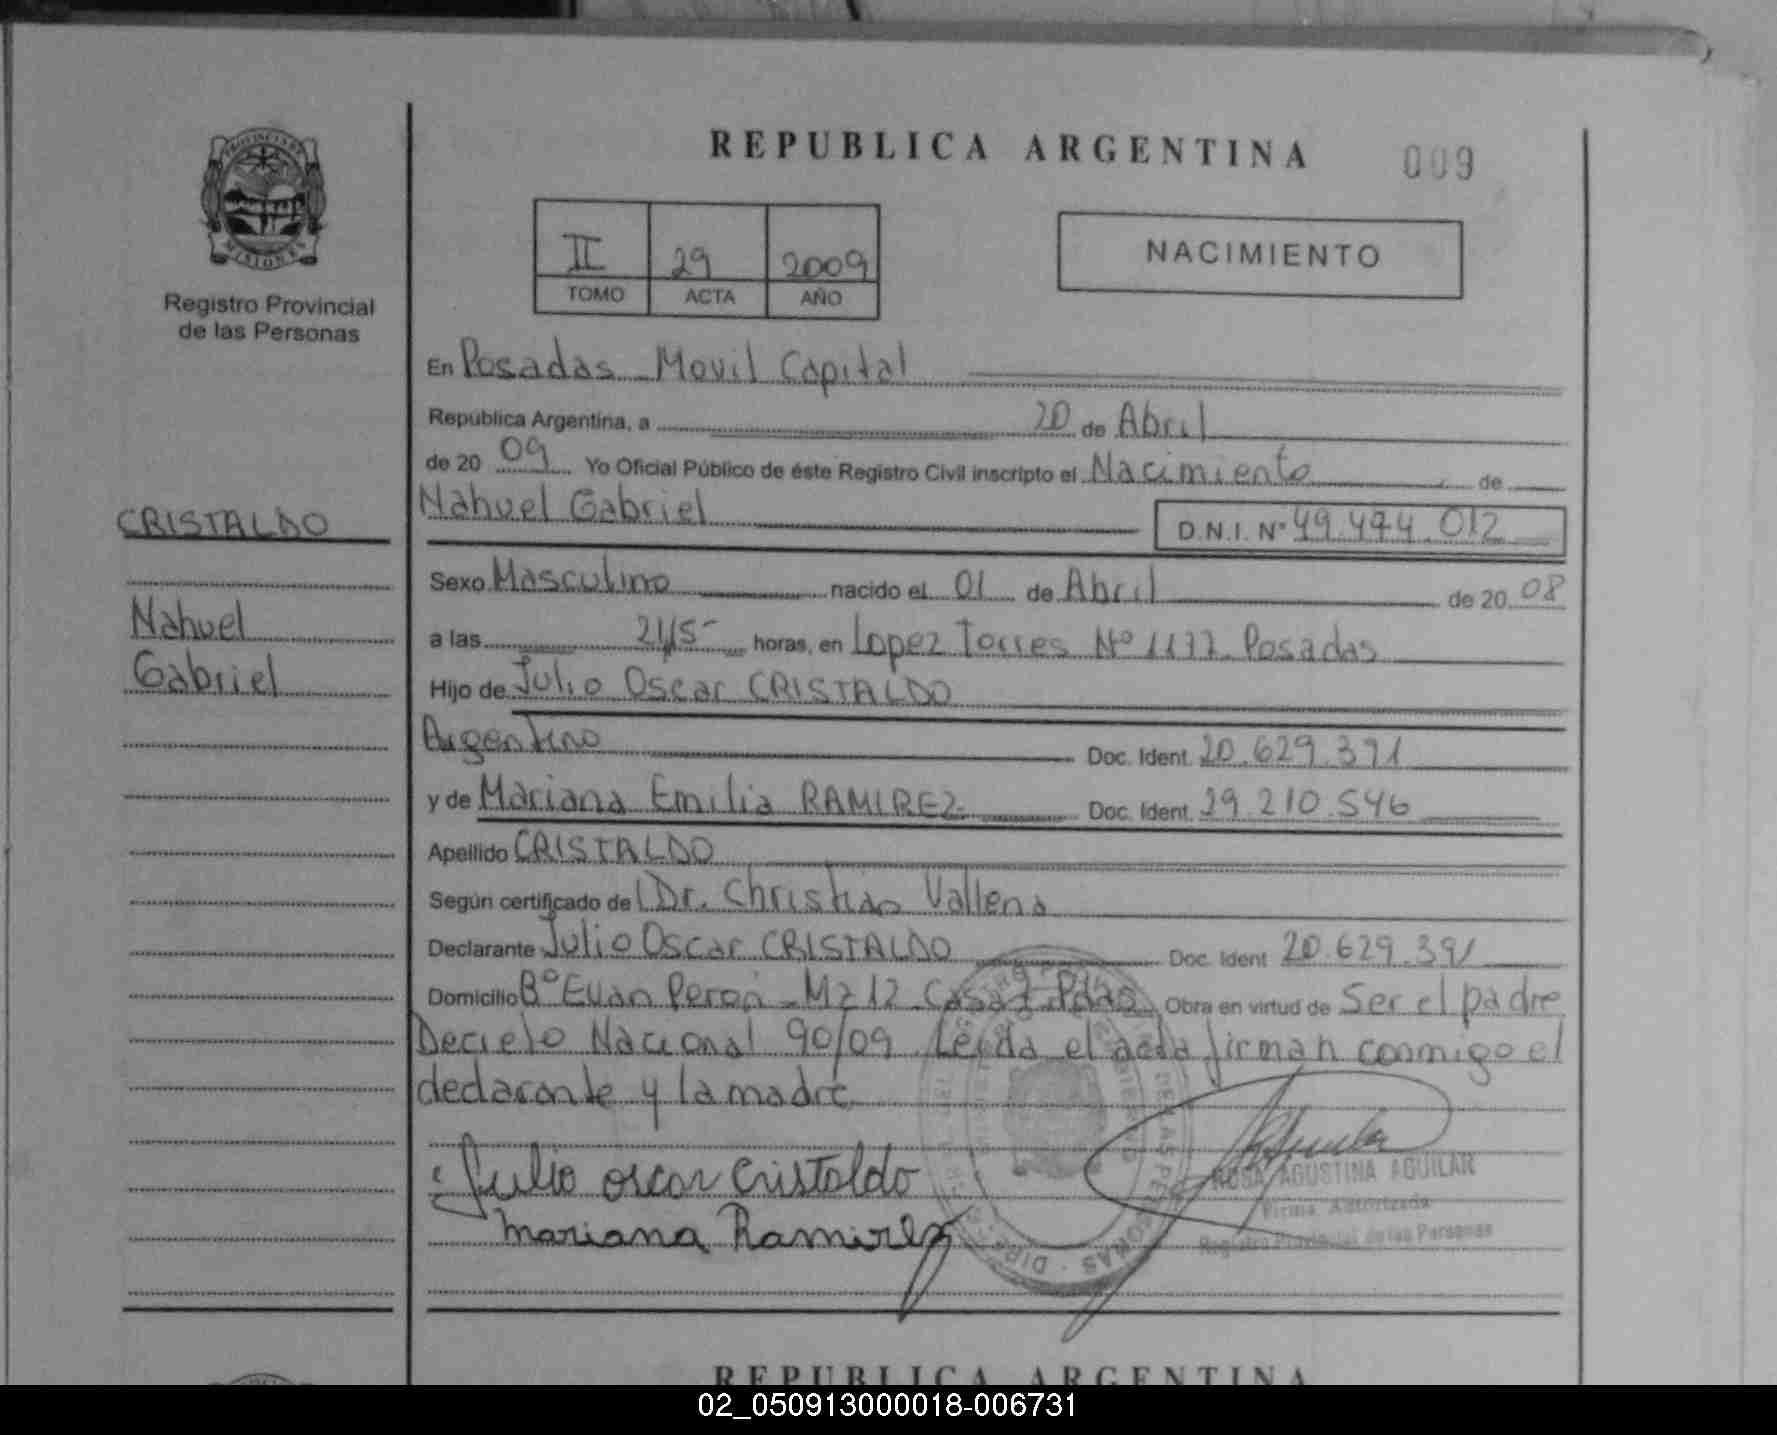 PROVINCIA DE
MISIONES
Registro Provincial
de las Personas
CRISTALDO
Nahuel
Gabriel
REPUBLICA ARGENTINA 009
II 29 2009
TOMO ACTA AÑO
NACIMIENTO
En Posadas - Movil Capital
Republica Argentina, a 20 de Abril
de 20 09 Yo Oficial Público de éste Registro Civil inscripto el Nacimiento de
Nahuel Gabriel D.N.I. Nº 49.474.012
Sexo Masculino nacido el 01 de Abril de 20 08
a las 2115 horas, en Lopez Torres Nº 1177 Posadas
Hijo de Julio Oscar CRISTALDO
Argentino Doc. Ident. 20.629.391
y de Mariana Emilia RAMIREZ Doc. Ident. 29.210.546
Apellido CRISTALDO
Según certificado de Dr. Christian Vallena
Declarante Julio Oscar CRISTALDO Doc. Ident 20.629.391
Domicilio Bº Evan Peron - Mz 12 Casa Pdas Obra en virtud de Ser el padre
Decreto Nacional 90/09 Leida el acta firman conmigo el
declarante y la madre
Julio oscar Cristaldo
mariana Ramirez
ROSA AGUSTINA AGUILAR
Firma Autorizada
Registro Provincial de las Personas
REPUBLICA ARGENTINA
02_050913000018-006731